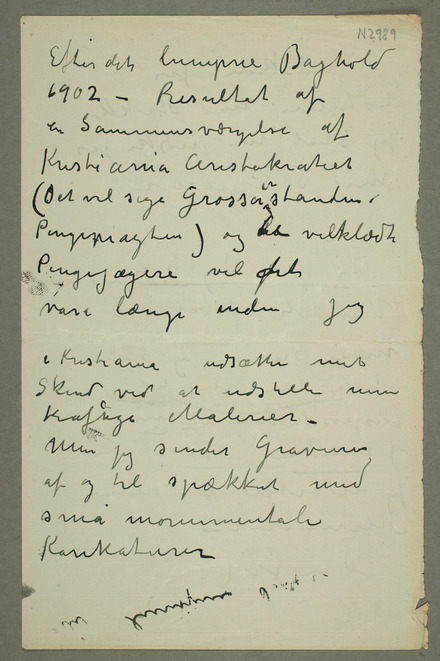 N2989
Efter det lumpne Baghold
1902 – Resultat af
en Sammensværgelse af
Kristiania Aristokratiet
(Det vil sige Grosserstanden.
Pengemagten) og velklædte
Pengejægere vil det
vare længe inden jeg
i Kristiania udsætter mit
Skind ved at udstille mine
kraftige Malerier –
Men jeg sender Gravurer
af og til spækket med
små monumentale
Karikaturer